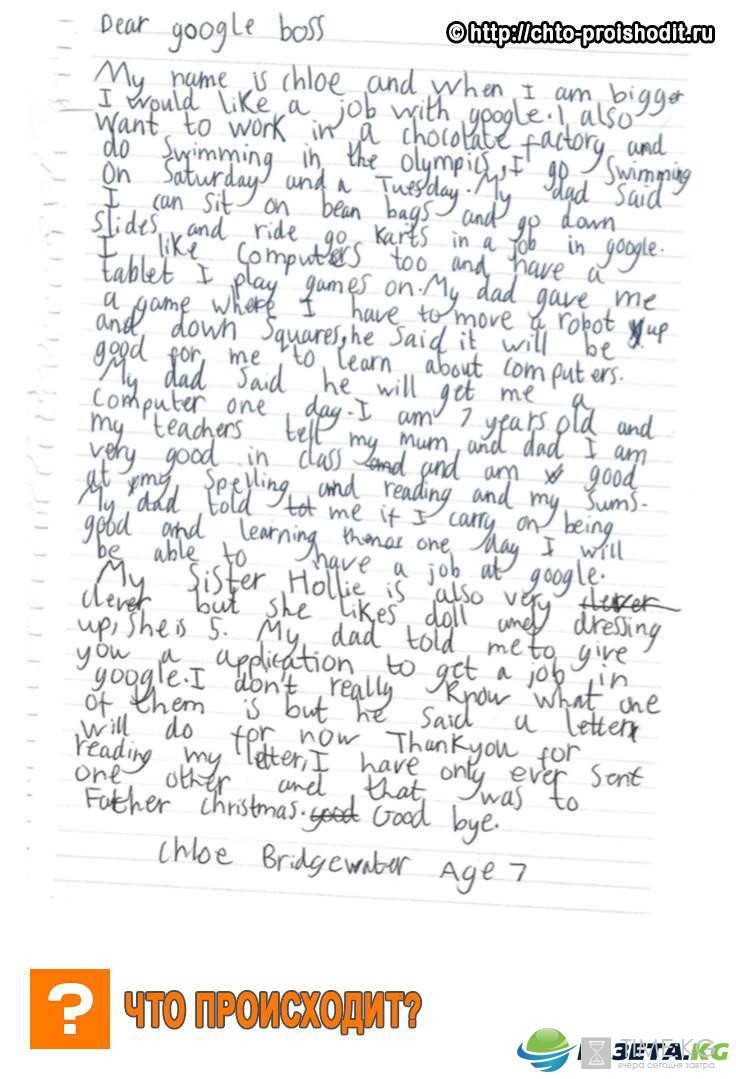 Dear google boss
© http://chto-proishodit.ru
My name is chloe and when I am bigger
I would like a job with google. I also
want to work in a chocolate factory and
do swimming in the olympics, I go swimming
on Saturday and a Tuesday. My dad said
I can sit on bean bags and go down
slides and ride go karts in a job in google.
I like computers too and have a
tablet I play games on. My dad gave me
a game where I have to move a robot up
and down squares, he said it will be
good for me to learn about computers.
My dad said he will get me a
computer one day. I am 7 years old and
my teachers tell my mum and dad I am
very good in class and and am good
at my spelling and reading and my sums.
My dad told tot me if I carry on being
good and learning then one day I will
be able to have a job at google.
My sister Hollie is also very clever
clever but she likes doll and dressing
up, she is 5. My dad told me to give
you a application to get a job in
google. I don't really know what one
of them is but he said a letter
will do for now Thankyou for
reading my letter, I have only ever sent
one other and that was to
Father christmas. good Good bye.
Chloe Bridgewater Age 7
? ЧТО ПРОИСХОДИТ?
TIME.KG
вчера сегодня завтра